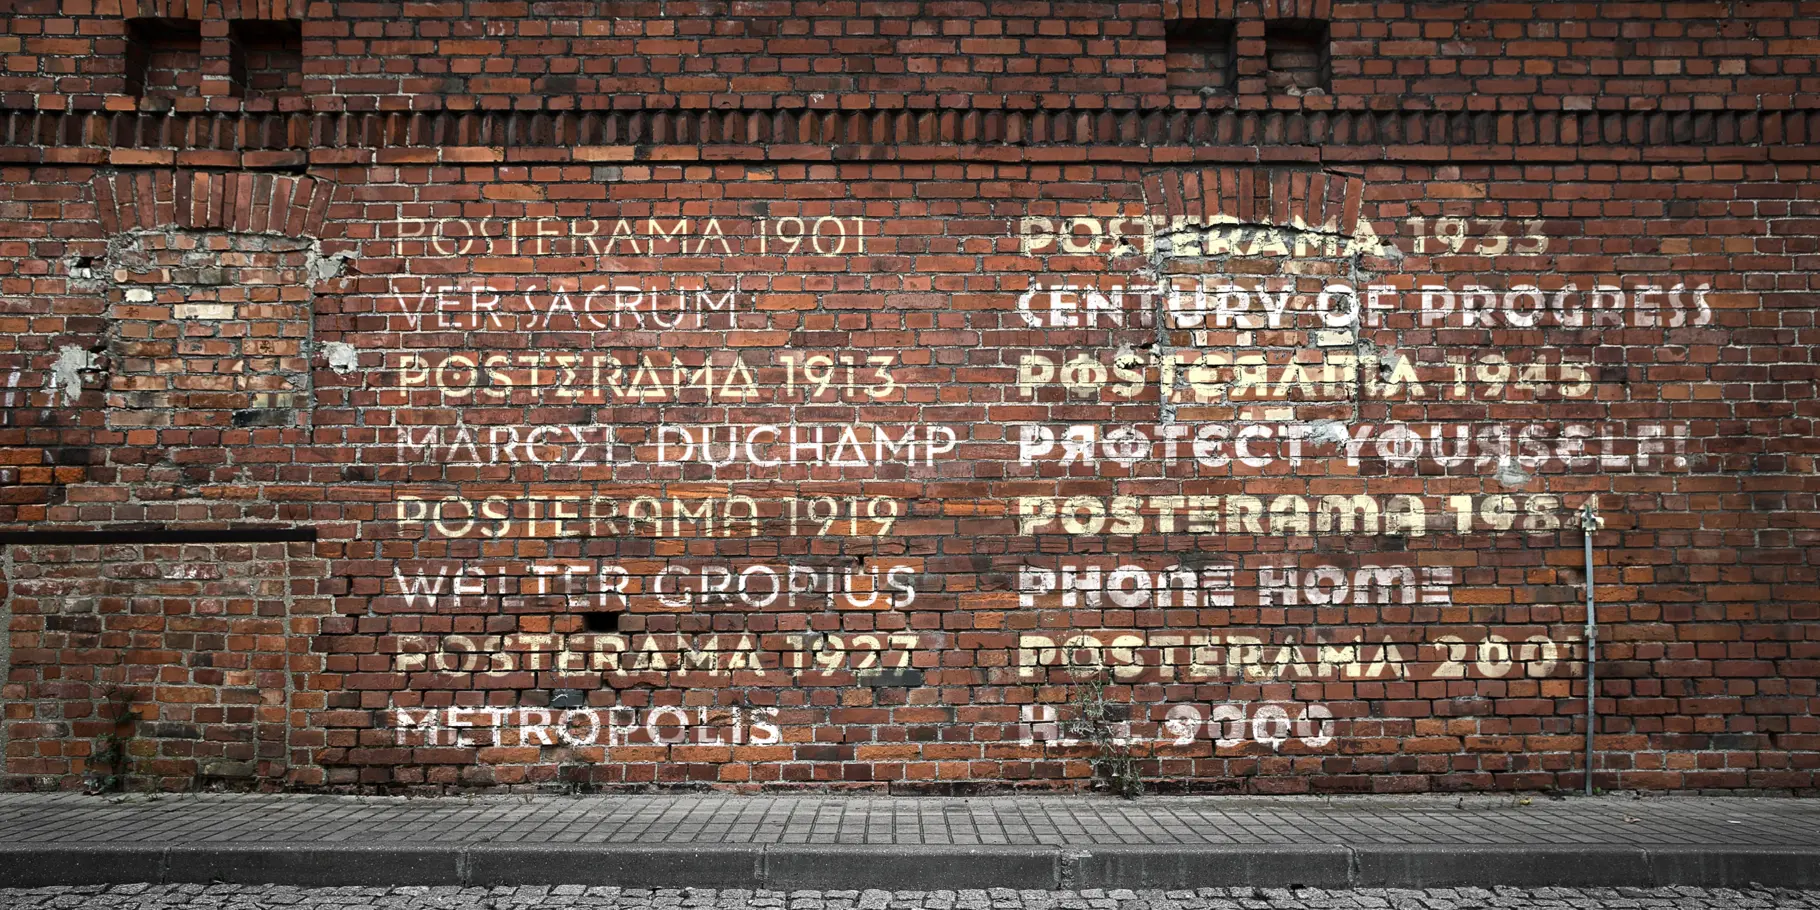 POSTERAMA 1901
VER SACRUM
POSTERAMA 1913
MARCEL DUCHAMP
POSTERAMA 1919
WALTER GROPIUS
POSTERAMA 1927
METROPOLIS
POSTERAMA 1933
CENTURY OF PROGRESS
POSTERAMA 1945
PROTECT YOURSELF!
POSTERAMA 1984
PHONE HOME
POSTERAMA 2001
9000